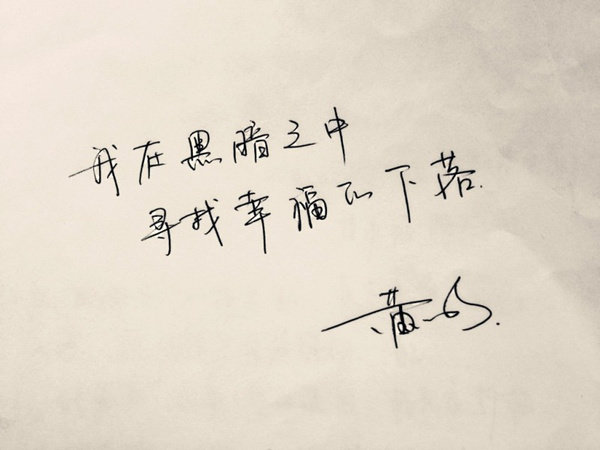 我在黑暗之中
尋找幸福的下落.